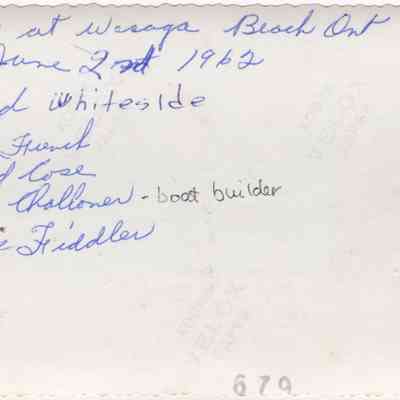 at Wasaga Beach Ont
June 2nd 1962
d Whiteside
French
d Cose
Challoner - boat builder
Fiddler
679